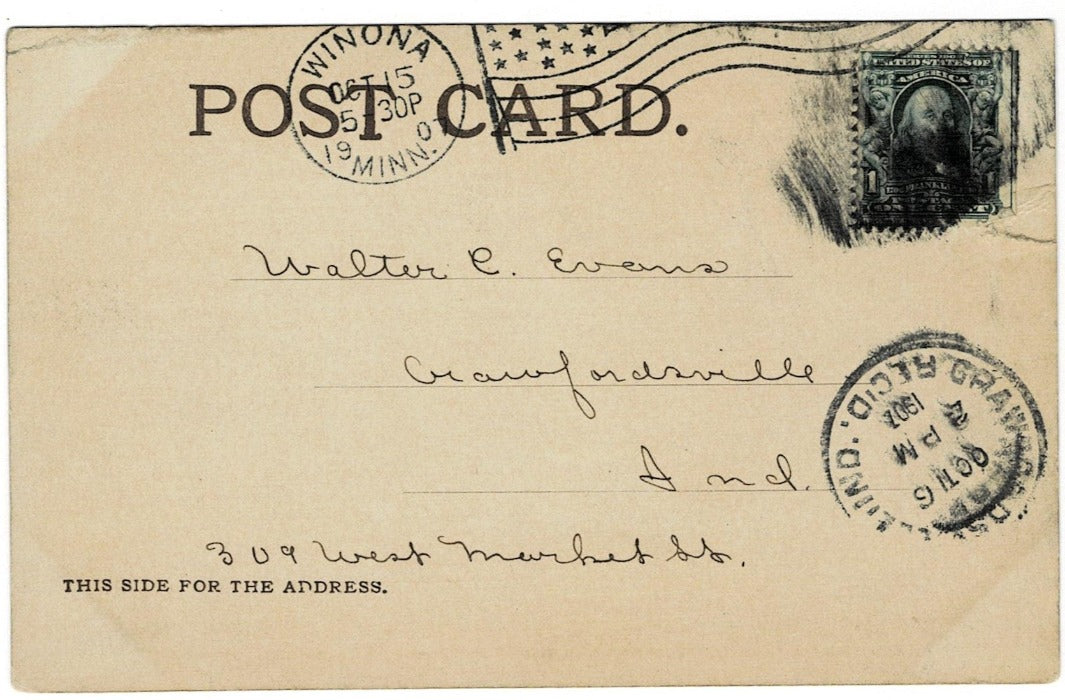 WINONA
OCT 15
5 30P
19 07
MINN.
POST CARD.
UNITED STATES OF
AMERICA
1 1
Walter C. Evans
Crawfordsville
Ind.
309 West Market St.
THIS SIDE FOR THE ADDRESS.
CRAWFORDSVILLE, IND. REC'D.
OCT 16
2 PM
1907